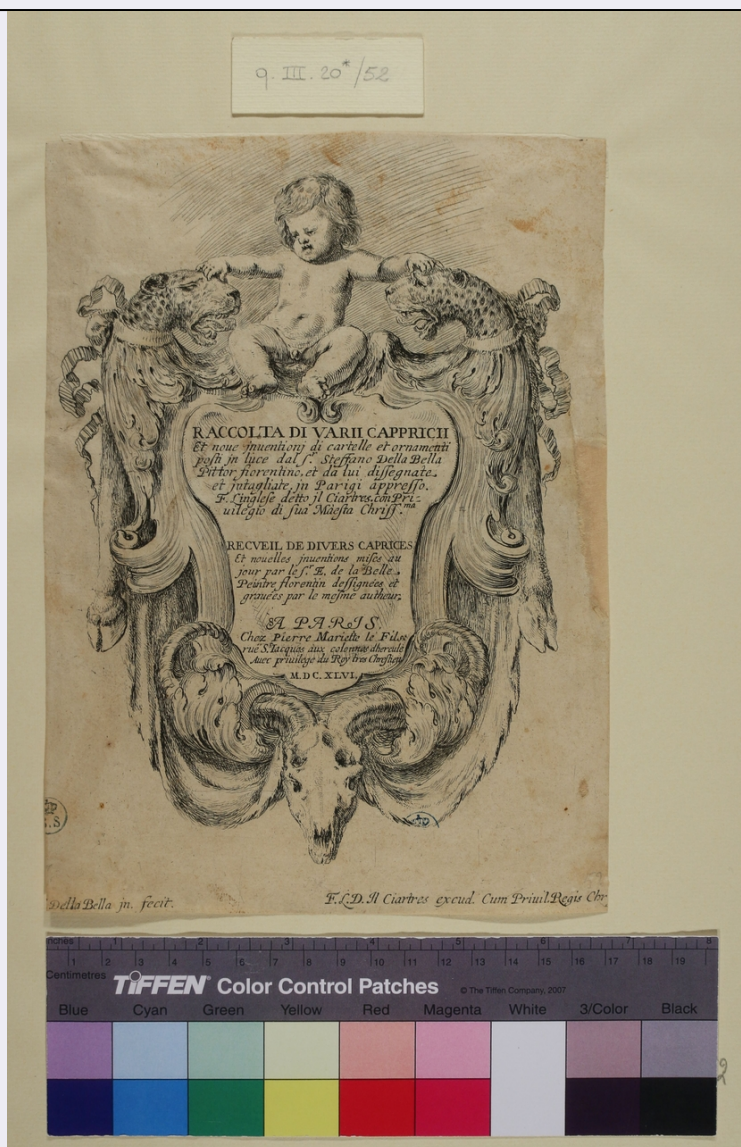 9. III. 20*/52
RACCOLTA DI VARII CAPPRICII
Et noue jnuentionj di cartelle et ornamenti
posti jn luce dal s.r Steffano Della Bella
Pittor fiorentino, et da lui dissegnate
et jntagliate, jn Parigi appresso.
F. L'inglese detto jl Ciartres, con Pri-
uilegio di sua Maesta Chriss.ma
RECVEIL DE DIVERS CAPRICES
Et nouelles jnuentions mises au
jour par le s.r E. de la Belle.
Peintre florentin dessignées et
grauées par le mesme autheur,
A PARIS,
Chez Pierre Mariette le Fils
rue S. Iacques aux colonnes dhercule
Auec priuilege du Roy tres Chrestien
M. DC. XLVI.
Della Bella jn. fecit.
F. L. D. Il Ciartres excud. Cum Priuil. Regis Chr
inches 1 2 3 4 5 6 7 8
1 2 3 4 5 6 7 8 9 10 11 12 13 14 15 16 17 18 19
Centimetres
TIFFEN® Color Control Patches © The Tiffen Company, 2007
Blue Cyan Green Yellow Red Magenta White 3/Color Black